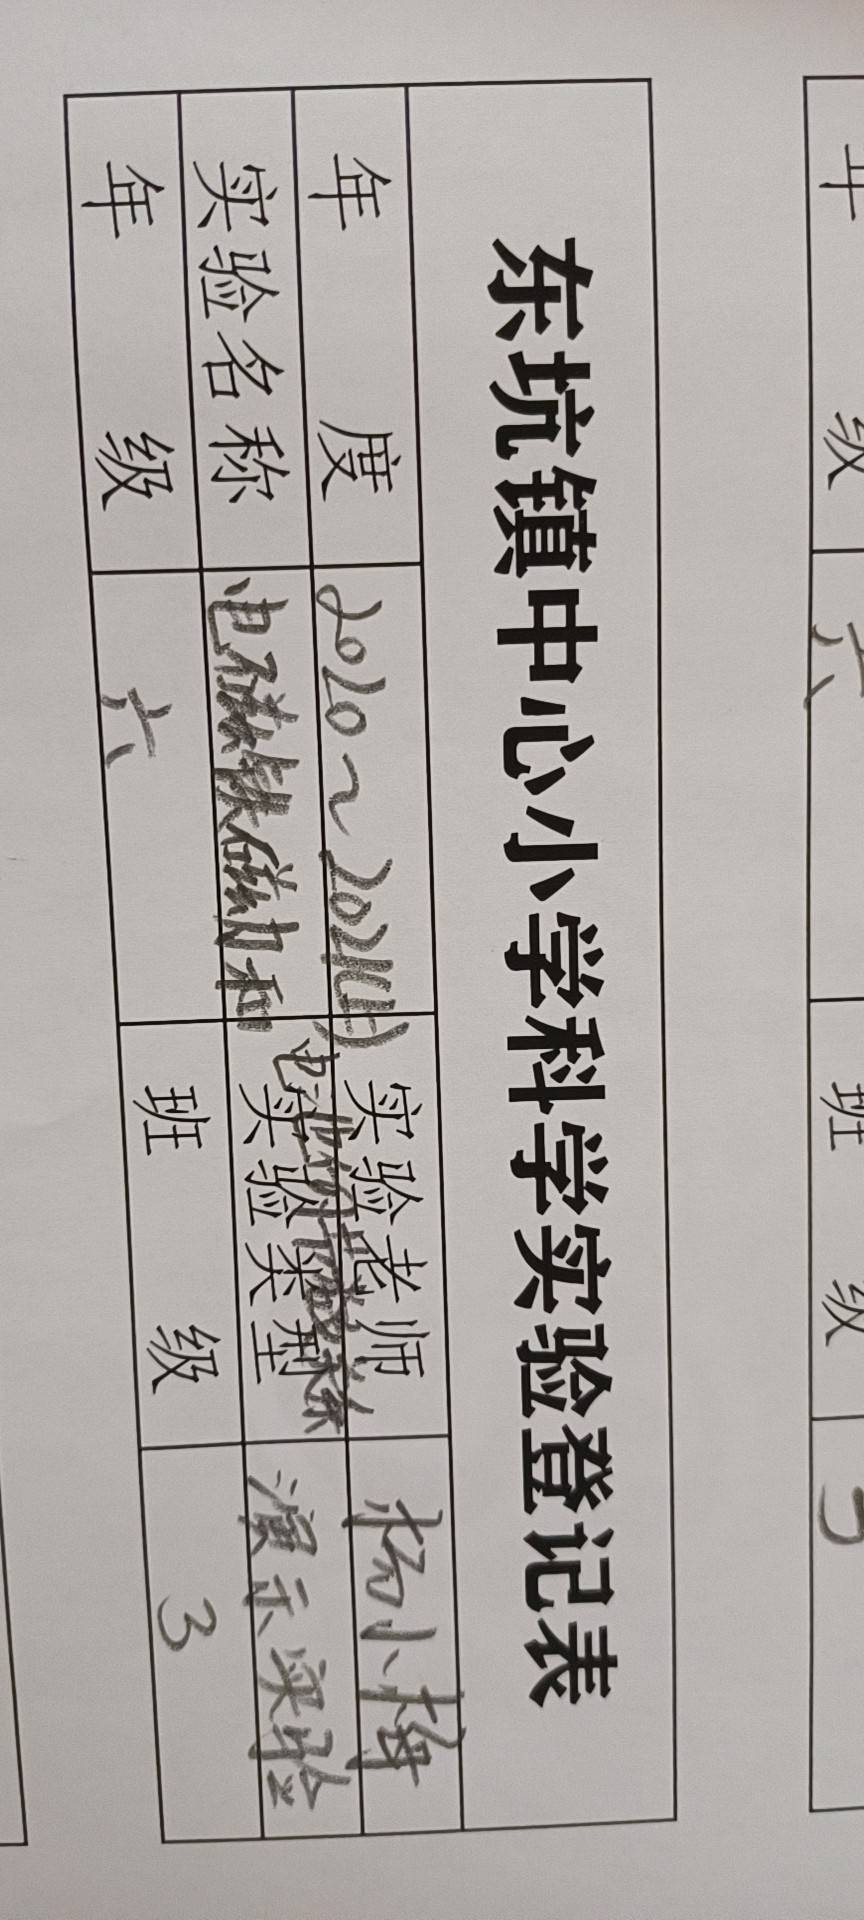 年 级 六 班 级 3
东坑镇中心小学科学实验登记表
年 度 2020~2021(上) 实验老师 杨小梅
实验名称 电磁铁磁力和电池的 实验类型 演示实验
年 级 六 班 级 3